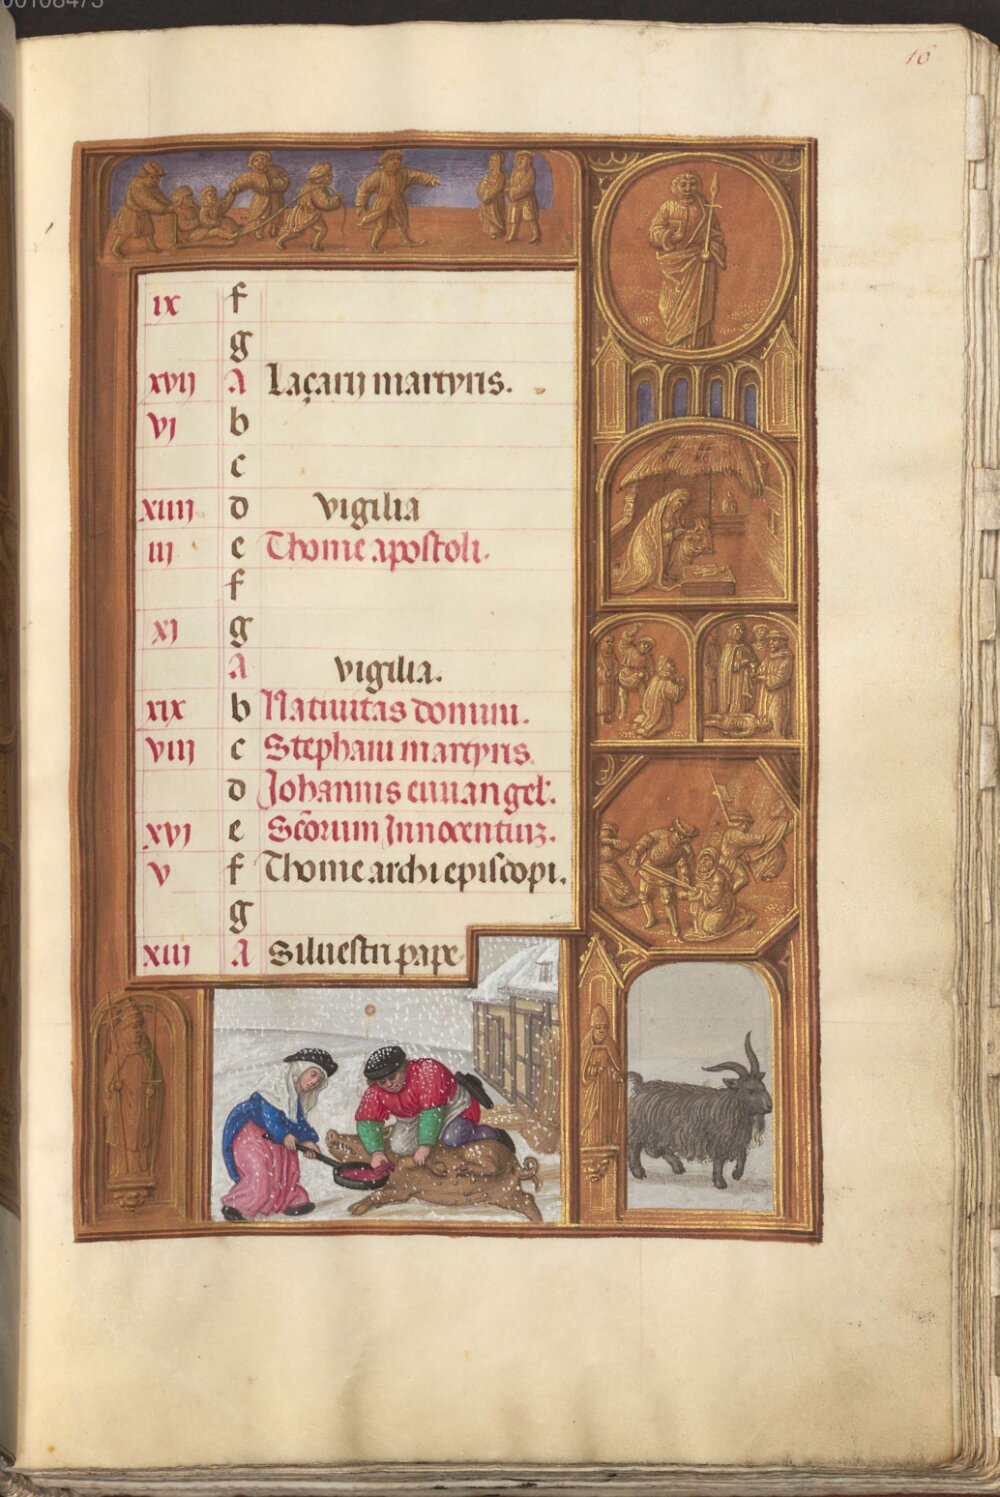 00108473
16
ix f
g
xvij A Laçarij martyris.
vj b
c
xiiij d vigilia
iij e Thome apostoli.
f
xj g
A vigilia.
xix b Natiuitas domini.
viij c Stephani martyris.
d Johannis euuangel'.
xvj e Sc̄orum Innocentiuꝫ.
v f Thome archiepiscopi.
g
xiij A Siluestri pape